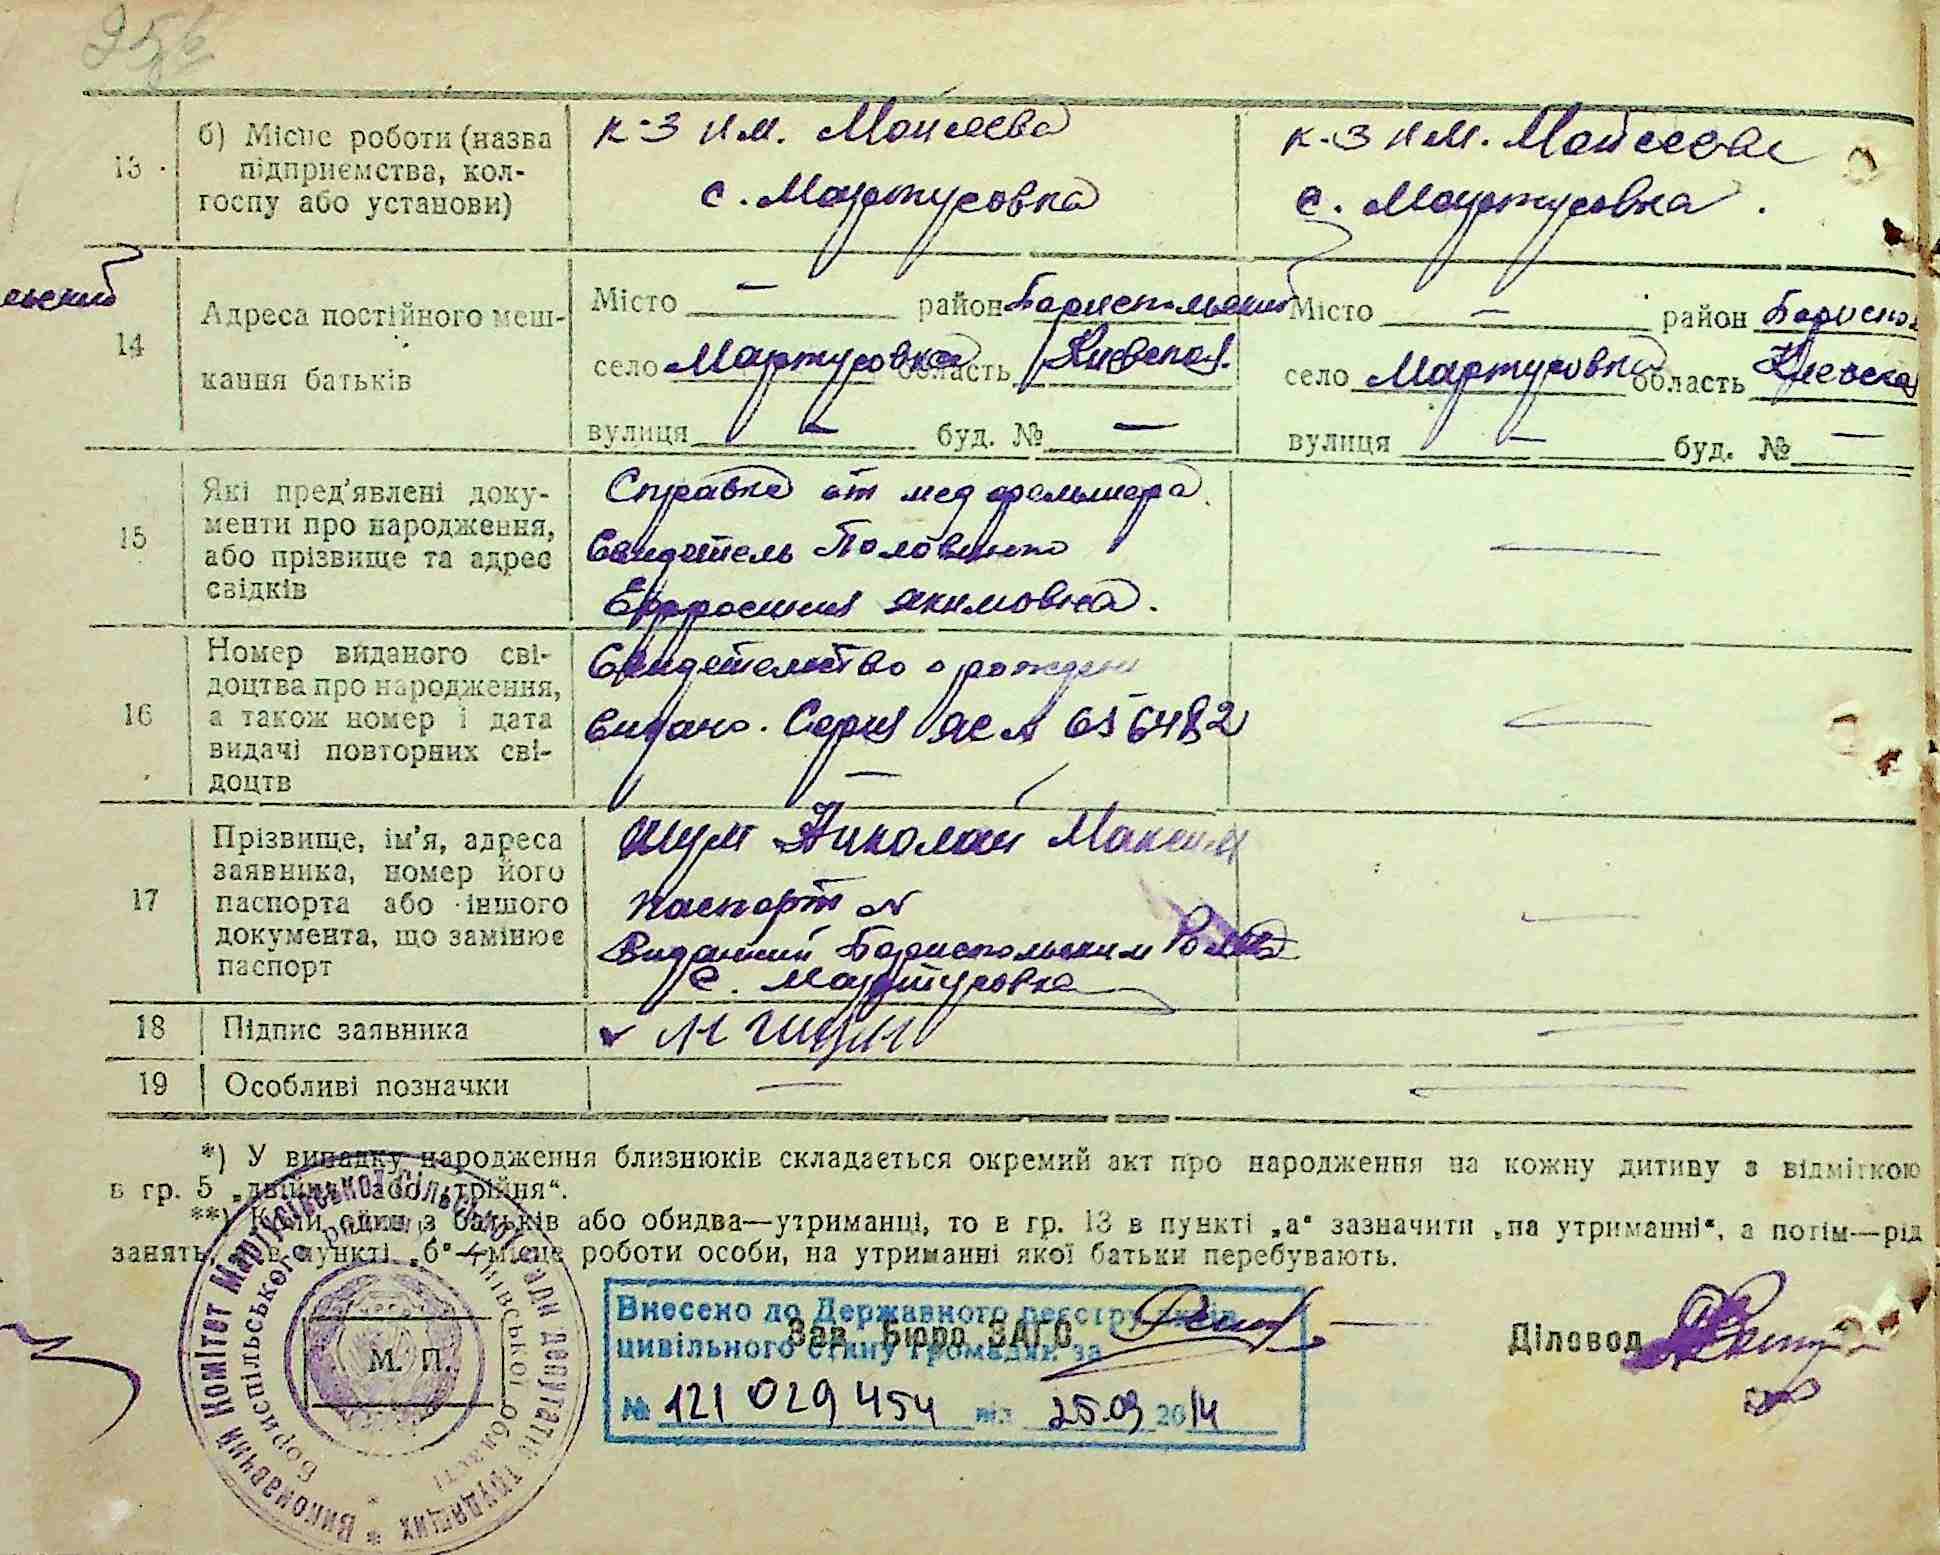 13
б) Місце роботи (назва
підприємства, кол-
госпу або установи)
к-з им. Моисеева
с. Мартусовка
к-з им. Моисеева
с. Мартусовка.
14
Адреса постійного меш-
кання батьків
Місто — район Бориспольский
село Мартусовка область Киевская.
вулиця — буд. № —
Місто — район Бориспол
село Мартусовка область Киевская
вулиця — буд. № —
ьский
15
Які пред'явлені доку-
менти про народження,
або прізвище та адрес
свідків
Справка от мед фельшера.
Свидетель Половинко
Ефросиния Якимовна.
—
16
Номер виданого сві-
доцтва про народження,
а також номер і дата
видачі повторних сві-
доцтв
Свидетельство о рожден
видано. Серия № 656482
—
—
17
Прізвище, ім'я, адреса
заявника, номер його
паспорта або іншого
документа, що замінює
паспорт
Шум Николай Максим
паспорт №
Виданний Бориспольским
с. Мартусовка
—
18
Підпис заявника
—
19
Особливі позначки
—
—
*) У випадку народження близнюків складається окремий акт про народження на кожну дитину з відміткою
в гр. 5 „двійня“ або „трійня“.
**) Коли один з батьків або обидва—утриманці, то в гр. 13 в пункті „а“ зазначити „на утриманні“, а потім—рід
занять, а в пункті „б“—місце роботи особи, на утриманні якої батьки перебувають.
Виконавчий Комітет Мартусівської сільської Ради депутатів трудящих
Бориспільського району Київської області
М. П.
Зав. Бюро ЗАГС
Діловод
Внесено до Державного реєстру актів
цивільного стану громадян за
№ 121 029 454 від 25.09 2014